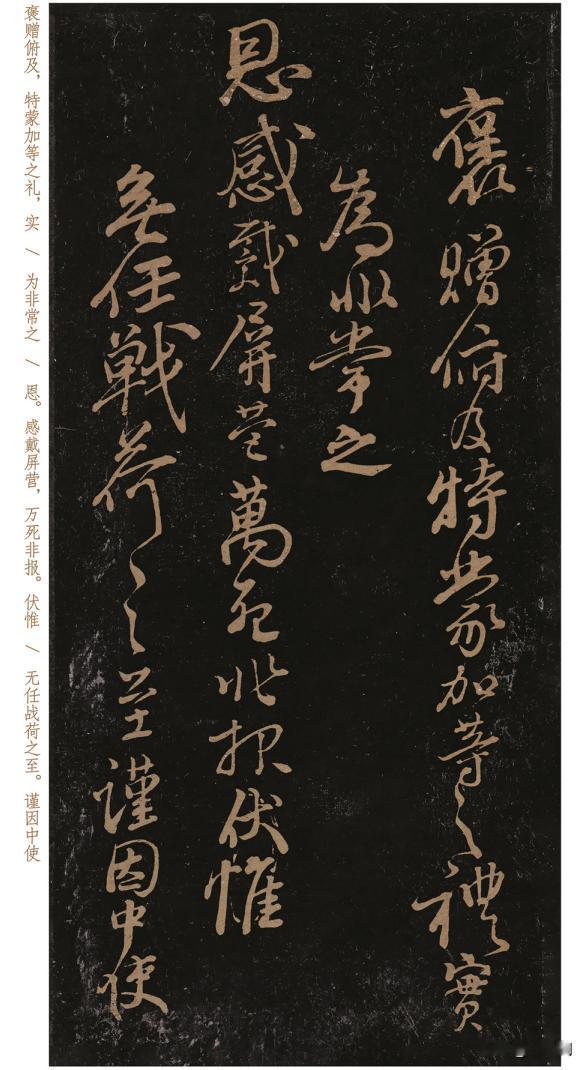 褒赠俯及，特蒙加等之礼，实 / 为非常之 / 恩。感戴屏营，万死非报。伏惟 / 无任战荷之至。谨因中使
褒贈俯及特蒙加等之禮實
為非常之
恩感戴屏營萬死非报伏惟
無任戰荷之至謹因中使